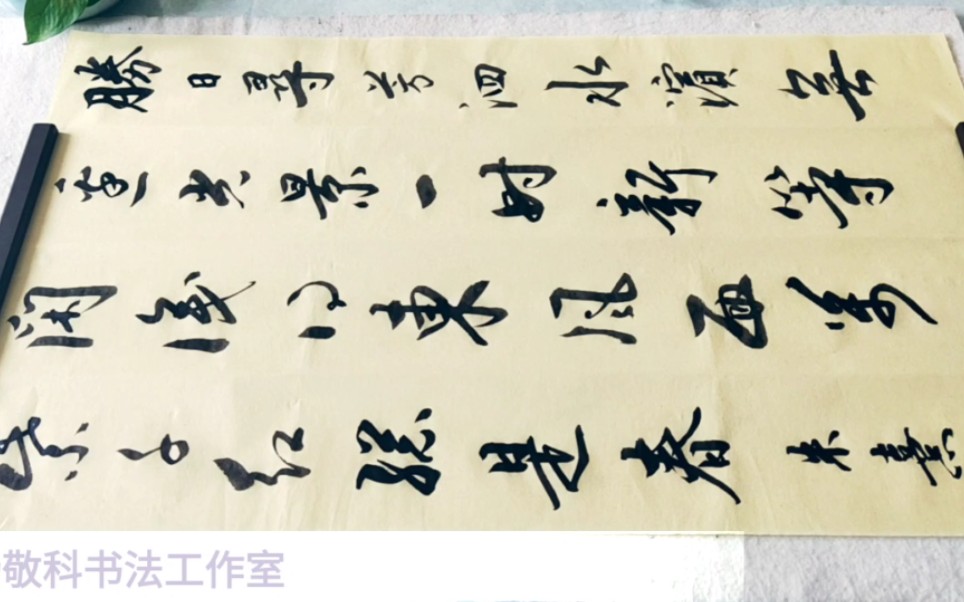 勝日尋芳泗水濱無
邊光景一时新等
闲識得東風面萬
紫千紅總是春 朱熹
敬科书法工作室